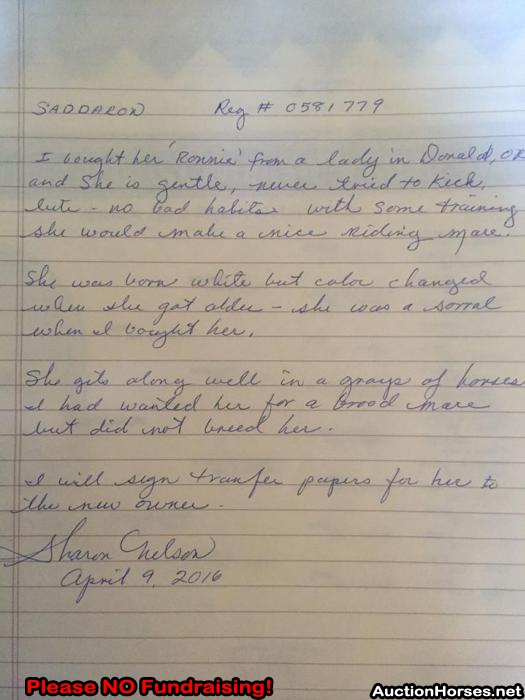 SADDARON Reg # 0581779
I bought her 'Ronnie' from a lady in Donald, OR
and She is gentle, never tried to kick,
bite - no bad habits with some training
she would make a nice riding mare.
She was born white but color changed
when she got older - she was a sorral
when I bought her.
She gets along well in a group of horses
I had wanted her for a brood mare
but did not breed her.
I will sign tranfer papers for her to
the new owner.
Sharon Nelson
April 9, 2016
Please NO Fundraising!
AuctionHorses.net